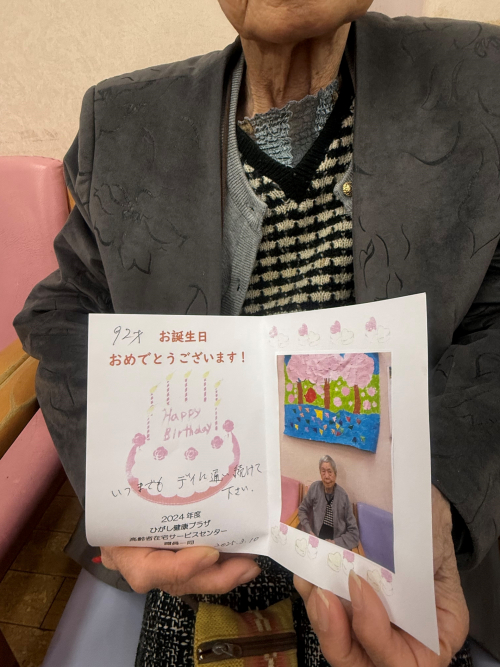 92才 お誕生日
おめでとうございます！
Happy
Birthday
いつまでも デイに通い続けて
下さい。
2024年度
ひがし健康プラザ
高齢者在宅サービスセンター
職員一同
2025.3.10